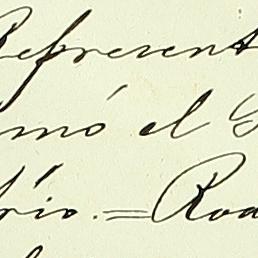 Represent
mó el G
rio.=Roa